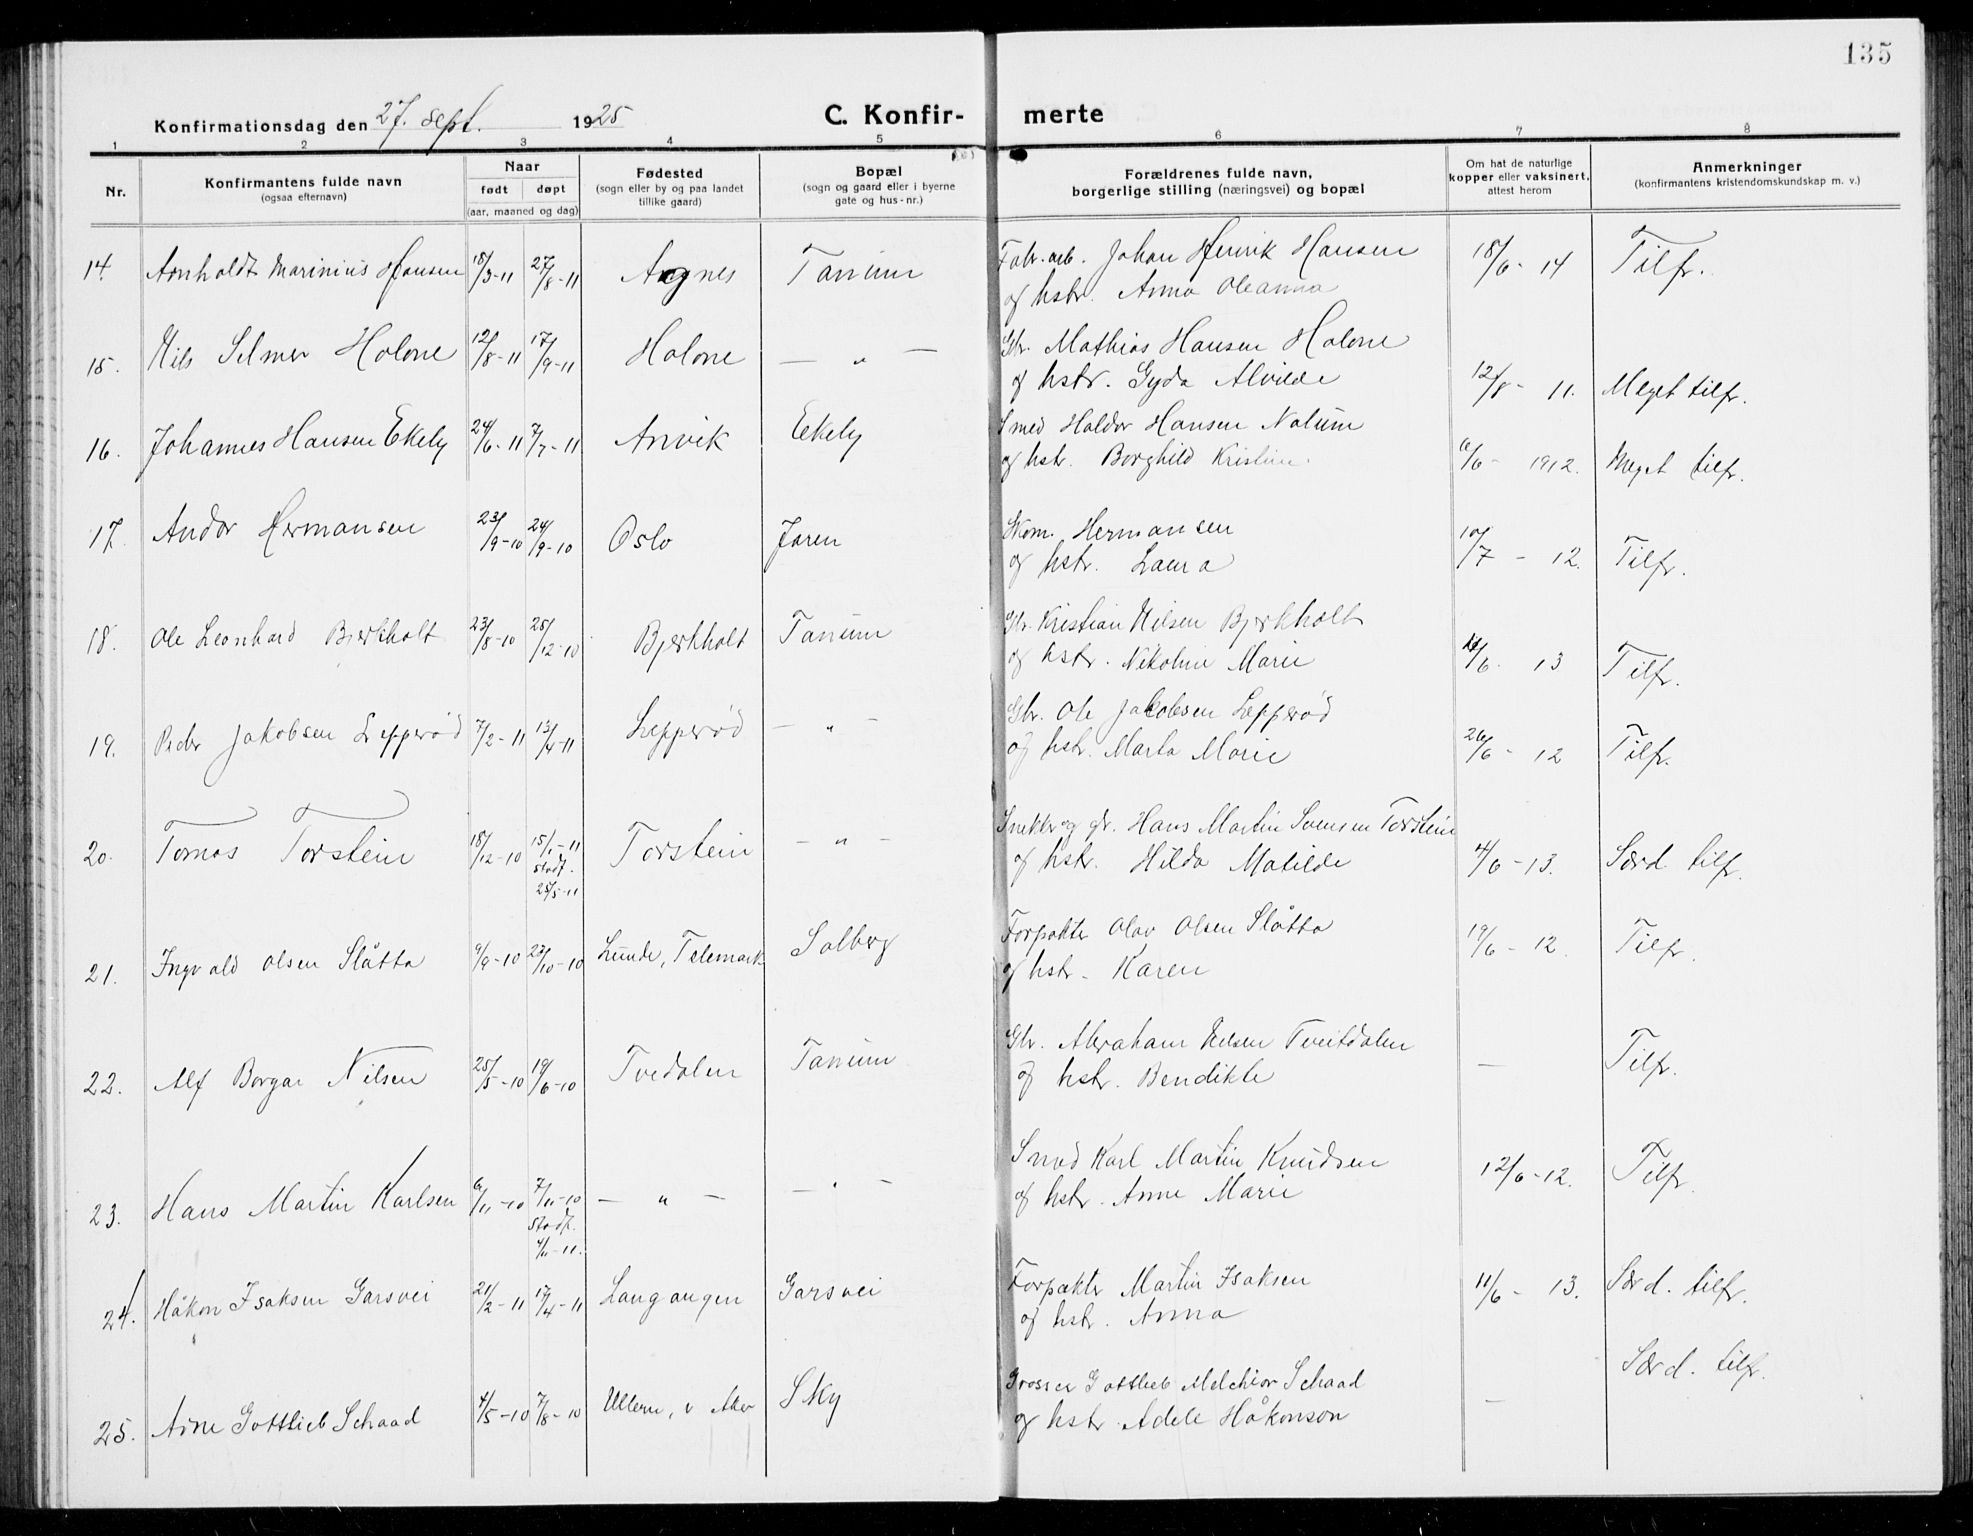 135
Konfirmationsdag den 27. sept. 1925
C. Konfir- merte
1 2 3 4 5 6 7 8
Nr.
Konfirmantens fulde navn
(ogsaa efternavn)
Naar
født døpt
(aar, maaned og dag)
Fødested
(sogn eller by og paa landet
tillike gaard)
Bopæl
(sogn og gaard eller i byerne
gate og hus-nr.)
Forældrenes fulde navn,
borgerlige stilling (næringsvei) og bopæl
Om hat de naturlige
kopper eller vaksinert,
attest herom
Anmerkninger
(konfirmantens kristendomskundskap m. v.)
14. Arnholdt Marinius Hansen 18/3-11 27/8-11 Agnes Tanum Fabr. arb. Johan Henrik Hansen 18/6 - 14 Tilfr.
og hstr. Anna Oleanna
15. Nils Selmer Holone 12/8-11 17/9-11 Holone — " — Gbr. Mathias Hansen Holone
og hstr. Gyda Alvilde 12/8 - 11. Meget tilfr.
16. Johannes Hansen Ekely 24/6-11 7/7-11 Anvik Ekely Smed Haldor Hansen Nalum
og hstr. Borghild Kristine. 6/6 - 1912. Meget tilfr.
17. Andor Hermansen 23/9-10 24/9-10 Oslo Jaren Skom. Hermansen
og hstr. Laura 10/7 - 12. Tilfr.
18. Ole Leonhard Bjerkholt 23/8-10 25/12-10 Bjerkholt Tanum Gbr. Kristian Nilsen Bjerkholt
og hstr. Nikoline Marie /6. 13 Tilfr.
19. Peder Jakobsen Lepperød 7/2-11 13/4-11 Lepperød — " — Gbr. Ole Jakobsen Lepperød
og hstr. Marta Marie 26/6 - 12 Tilfr.
20. Tomas Torstein 18/12-10 15/1-11 Torstein — " — Snekker og gbr. Hans Martin Svensen Torstein
stadf. 25/5-11 og hstr. Hilda Matilde 4/6 - 13. Særd. tilfr.
21. Ingvald Olsen Slåtta 9/9-10 23/10-10 Lunde, Telemark Solberg Forpakter Olav Olsen Slåtta 19/6 - 12. Tilfr.
og hstr. Karen
22. Alf Borgar Nilsen 25/5-10 19/6-10 Tvedalen Tanum Gbr. Abraham Nilsen Tveitdalen — Tilfr.
og hstr. Bendikte
23. Hans Martin Karlsen 6/11-10 7/11-10 — " — — " — Smed Karl Martin Knudsen 12/6-12. Tilfr.
stadf. 4/11-11. og hstr. Anne Marie
24. Håkon Isaksen Garsvei 21/2-11 17/4-11 Langangen Garsvei Forpakter Martin Isaksen 11/6 - 13. Særd. tilfr.
og hstr. Anna
25. Arne Gottlieb Schaad 4/5-10 7/8-10 Ullern, v Aker Sky Grosser Gottlieb Melchior Schaad — Særd. tilfr.
og hstr. Adele Håkonson